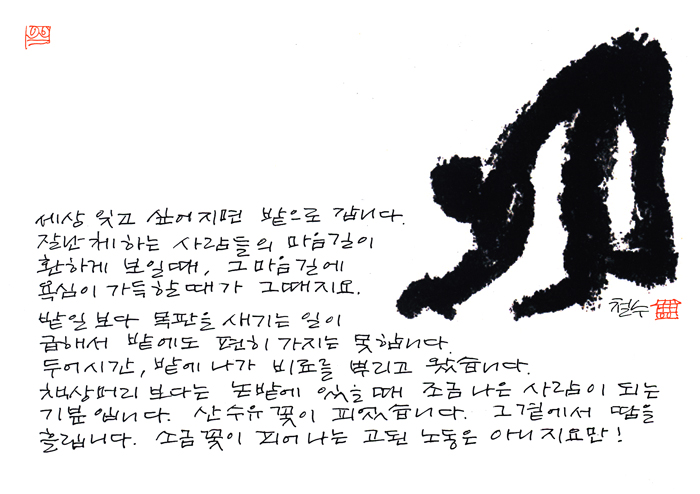 세상 잊고 싶어지면 밭으로 갑니다.
잘난체하는 사람들의 마음길이
환하게 보일때, 그마음길에
욕심이 가득할때가 그때지요.
밭일보다 목판을 새기는 일이
급해서 밭에도 편히 가지는 못합니다.
두어시간, 밭에 나가 비료를 뿌리고 왔습니다.
책상머리보다는 논밭에 있을때 조금 나은 사람이 되는
기분입니다. 산수유 꽃이 피었습니다. 그곁에서 땀을
흘립니다. 소금꽃이 피어나는 고된 노동은 아니지요만!
철수